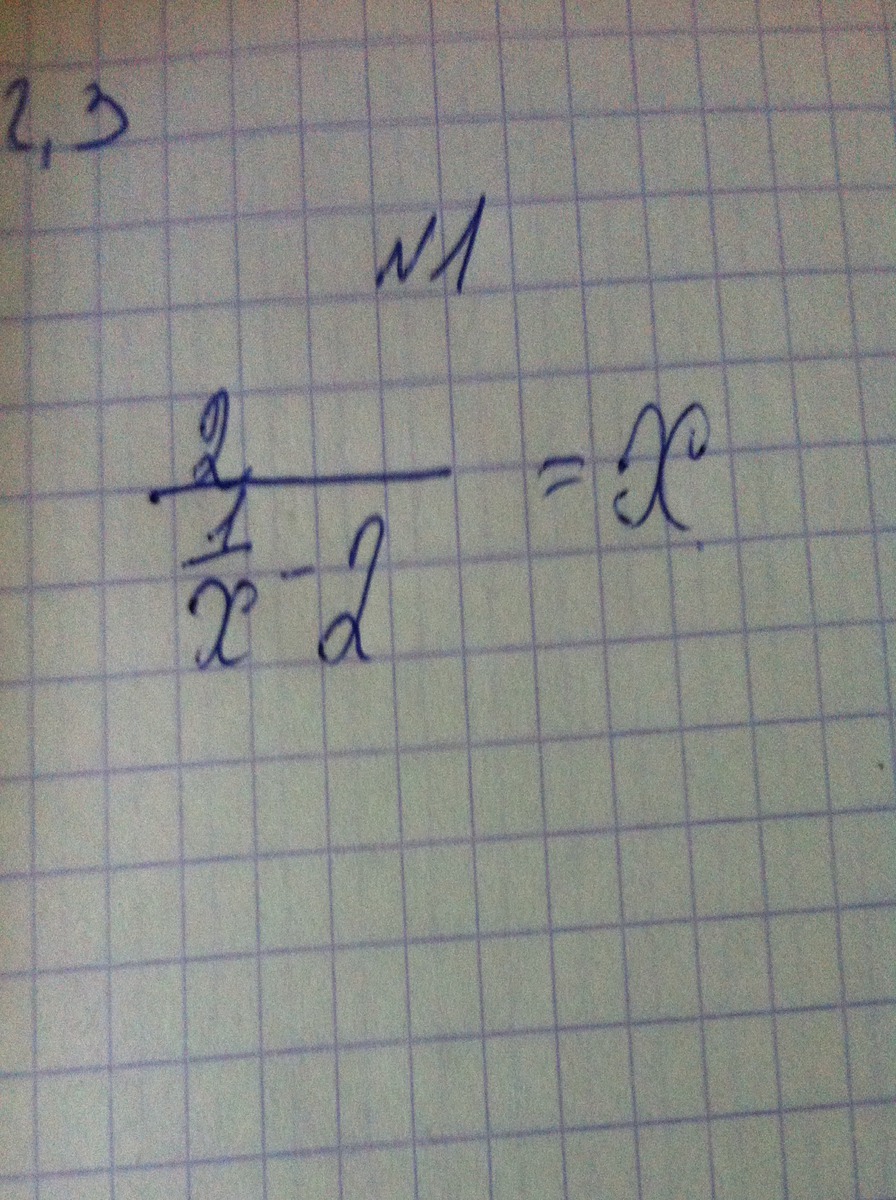 2,3
№1
2
1
— - 2 = x
x